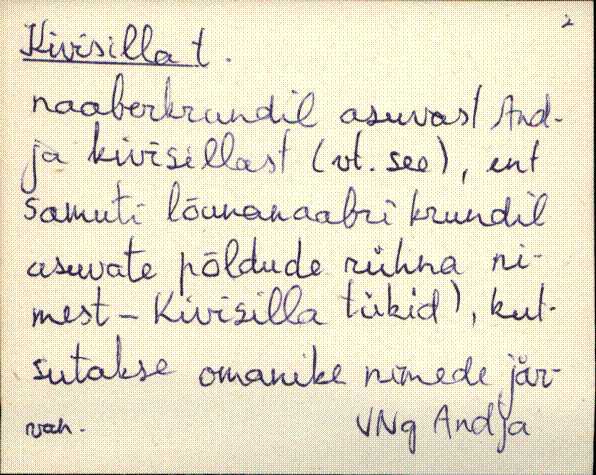 2
Kivisilla t.
naaberkrundil asuvast And-
ja kivisillast (vt. see), ent
samuti lõunanaabri krundil
asuvate põldude rühma ni-
mest - Kivisilla tükid), kut-
sutakse omanike nimede jär-
VNg Andja